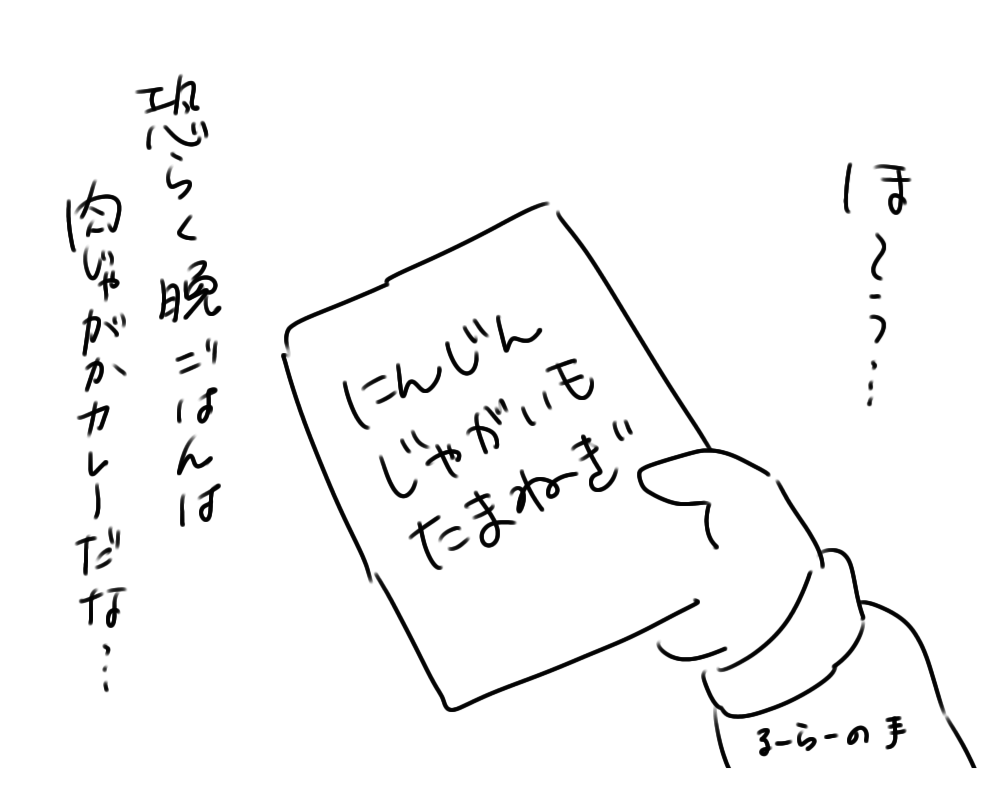 ほ〜う…
にんじん
じゃがいも
たまねぎ
恐らく晩ごはんは
肉じゃがかカレーだな…
るーらーの手